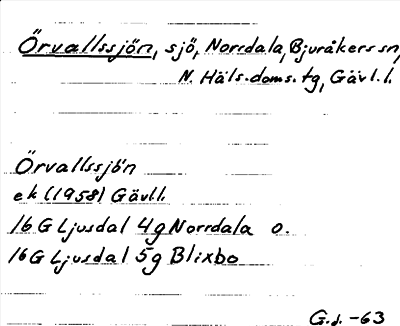 Örvallssjön, sjö, Norrdala, Bjuråkers sn,
N. Häls. doms. tg, Gävl. l.
Örvallssjön
ek (1958) Gävll.
16 G Ljusdal 4g Norrdala o.
16 G Ljusdal 5g Blixbo
G.d. -63